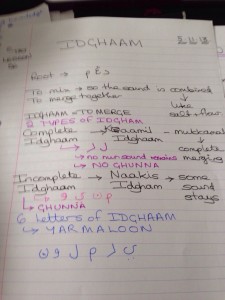 IDGHAAM
Root → د غ م
To mix → so the sound is combined
To merge together
like
salt + flour
IDGHAAM = TO MERGE
2 TYPES OF IDGHAM
Complete → Kaamil - mukkamal
Idghaam Idghaam
ل ر → complete
→ no nun sound remains merging
→ NO GHUNNA
Incomplete → Naakis → some
Idghaam Idgham sound
stays
ي و م ن
→ GHUNNA
6 letters of IDGHAAM
→ YARMALOON
ي ر م ل و ن